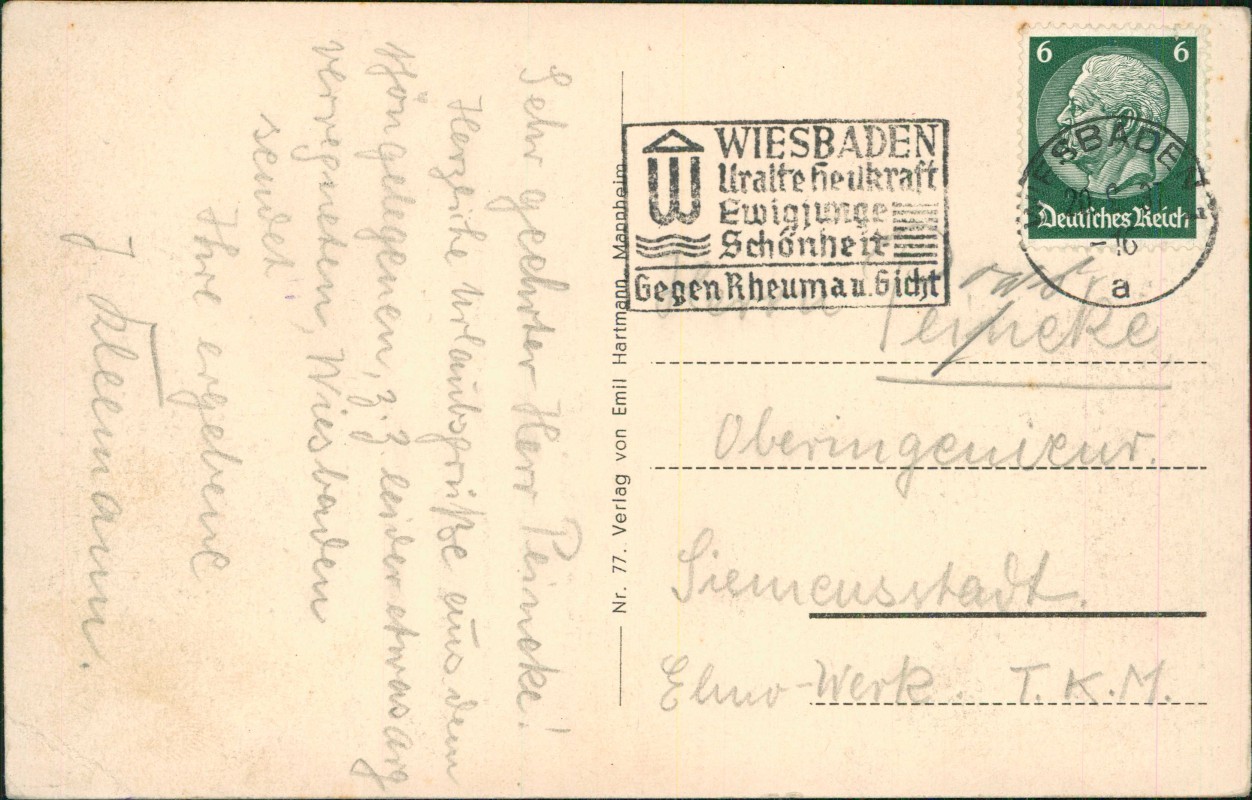 Sehr geehrter Herr Peineke!
Herzliche Urlaubsgrüße aus dem
schöngelegenen, z. Z. leider etwas arg
verregneten, Wiesbaden
sendet
Ihre ergebene
J Kleemann.
Nr. 77. Verlag von Emil Hartmann, Mannheim
WIESBADEN
Uralte Heilkraft
Ewigjunge
Schönheit
Gegen Rheuma u. Gicht
6 6
Deutsches Reich
WIESBADEN
a
Herrn Peineke
Oberingenieur.
Siemensstadt.
Elmo-Werk. T.K.M.